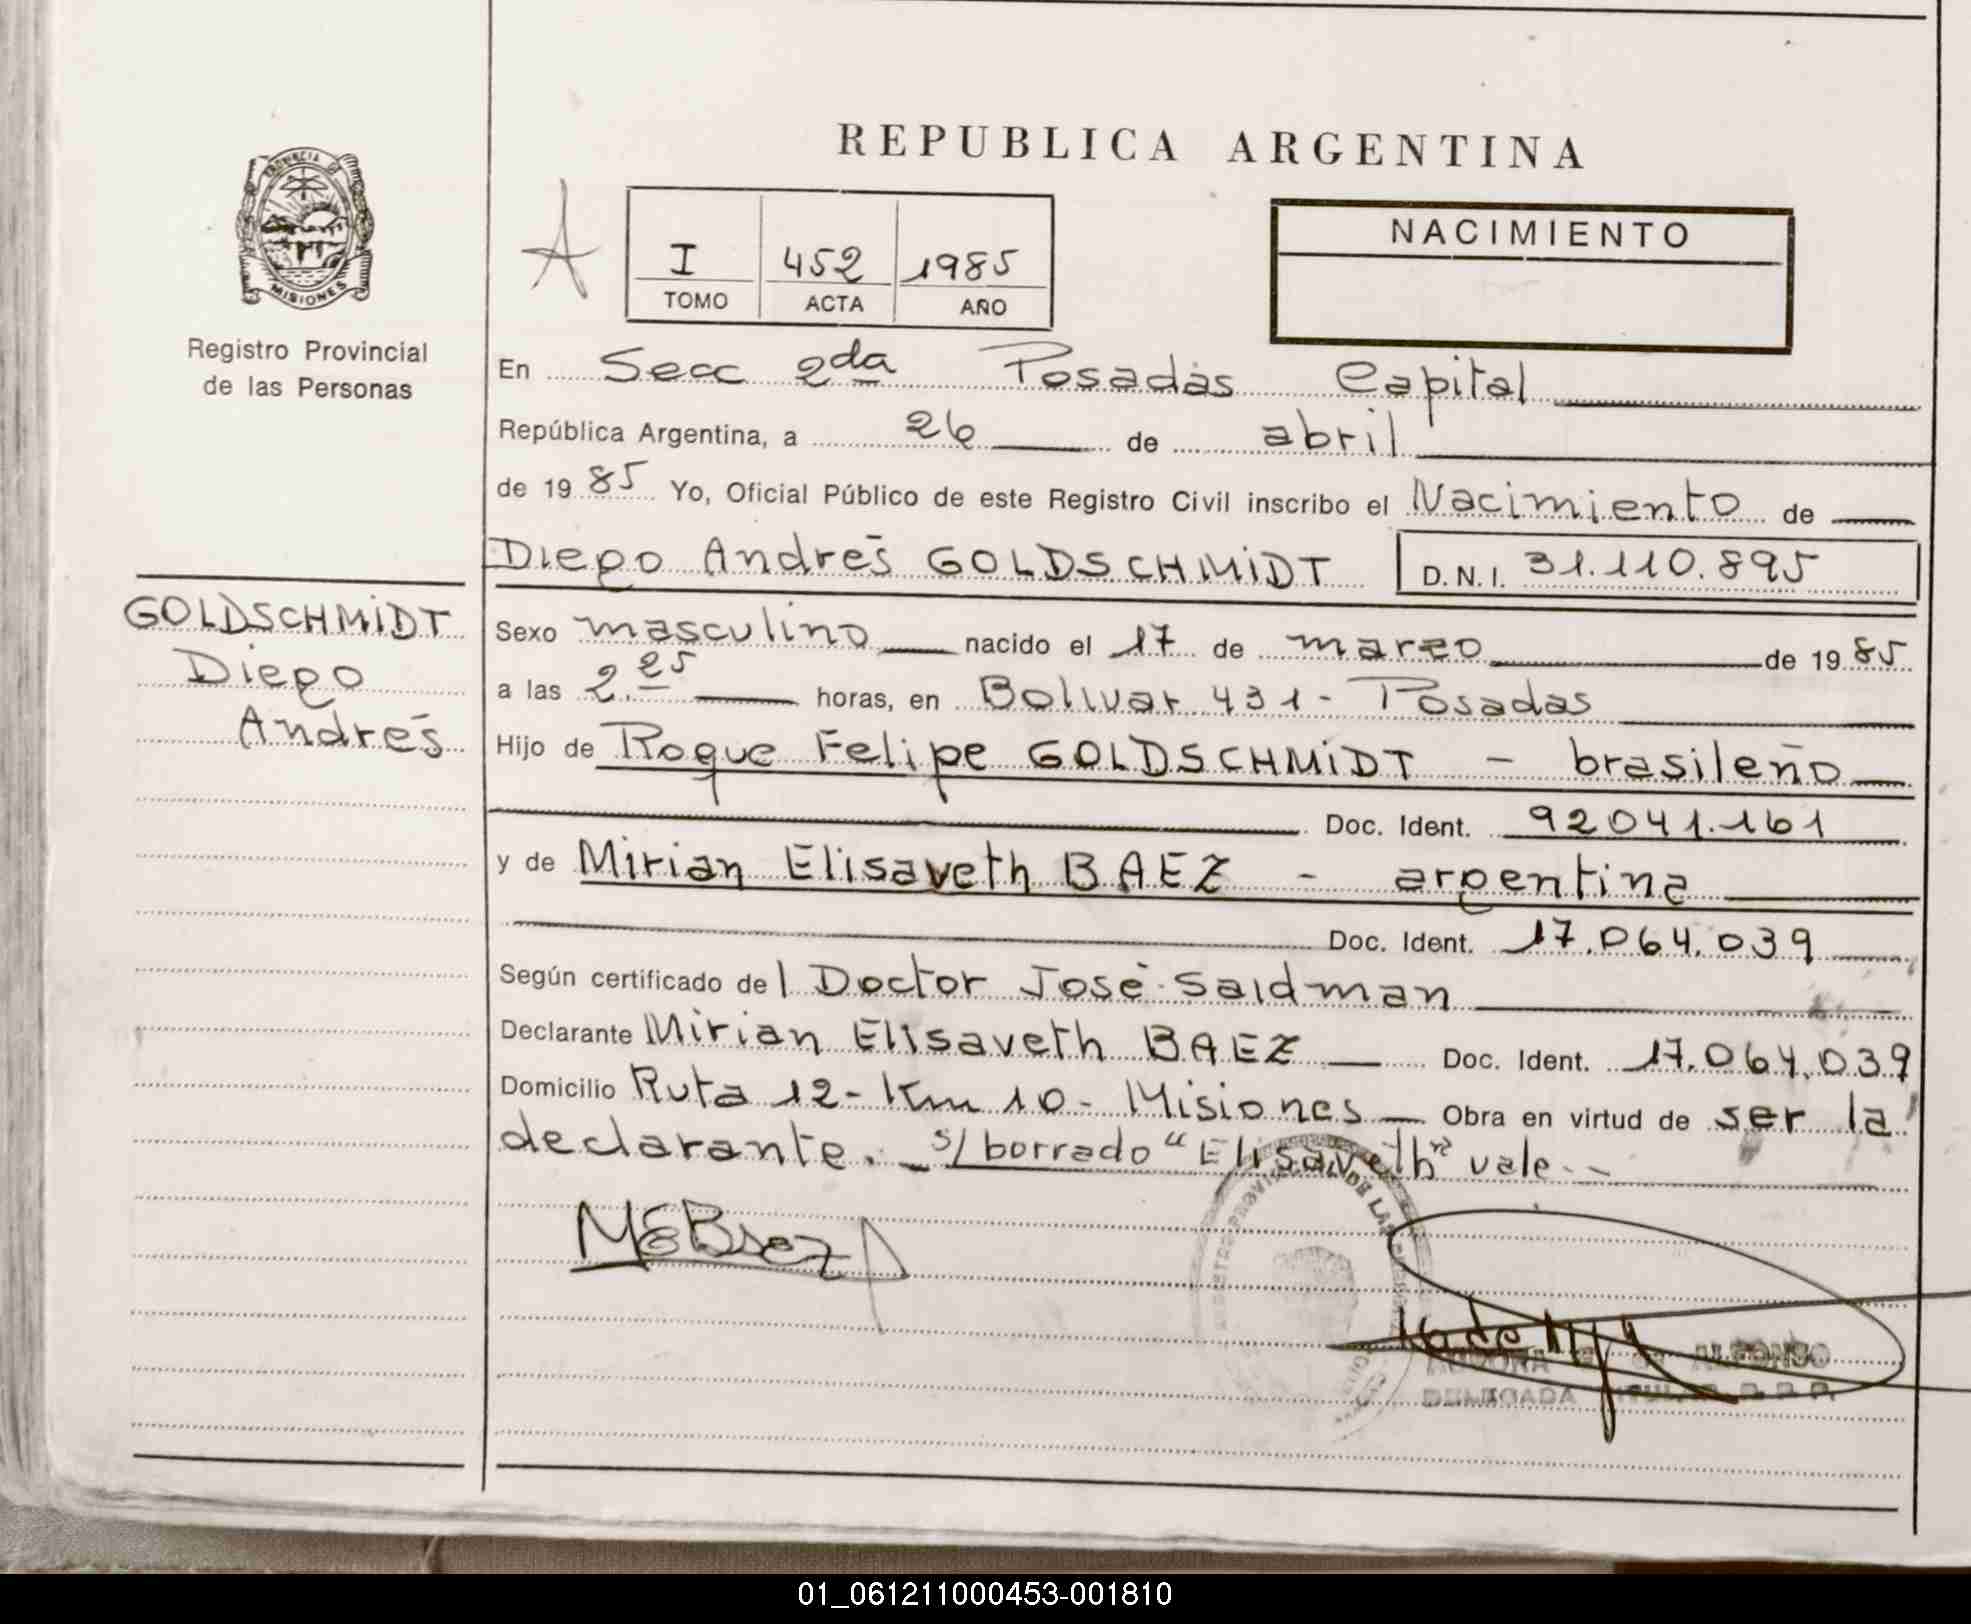 REPUBLICA ARGENTINA
PROVINCIA DE
MISIONES
Registro Provincial
de las Personas
A
I 452 1985
TOMO ACTA AÑO
NACIMIENTO
En Secc 2da Posadas Capital
República Argentina, a 26 de abril
de 1985 Yo, Oficial Público de este Registro Civil inscribo el Nacimiento de
Diego Andrés GOLDSCHMIDT D.N.I. 31.110.895
GOLDSCHMIDT
Diego
Andrés
Sexo masculino nacido el 17 de marzo de 1985
a las 2.25 horas, en Bolivar 431 - Posadas
Hijo de Roque Felipe GOLDSCHMIDT - brasileño
Doc. Ident. 92041.161
y de Mirian Elisaveth BAEZ - argentina
Doc. Ident. 17.064.039
Según certificado del Doctor José Saidman
Declarante Mirian Elisaveth BAEZ Doc. Ident. 17.064.039
Domicilio Ruta 12 - Km 10 - Misiones - Obra en virtud de ser la
declarante. - s/borrado "Elisaveth" vale. -
MEBaez
DE LAS
ALFONSO
DELEGADA TITULAR R. P. P.
01_061211000453-001810